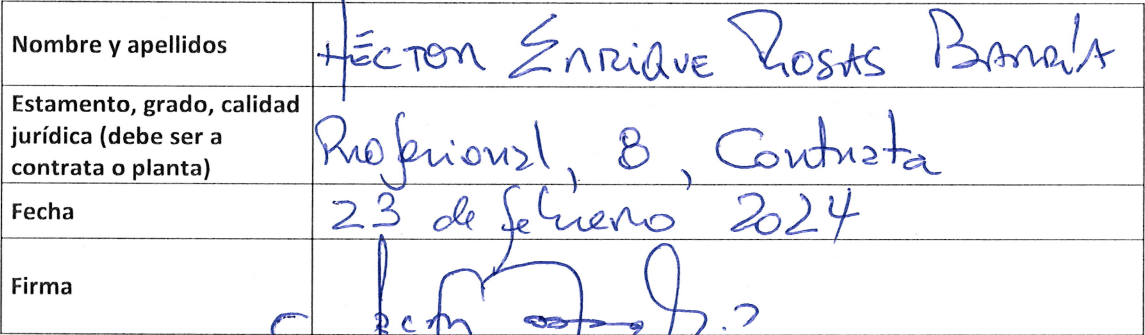 Nombre y apellidos HÉCTOR ENRIQUE ROSAS BARRÍA
Estamento, grado, calidad
jurídica (debe ser a
contrata o planta) Profesional, 8, Contrata
Fecha 23 de febrero 2024
Firma